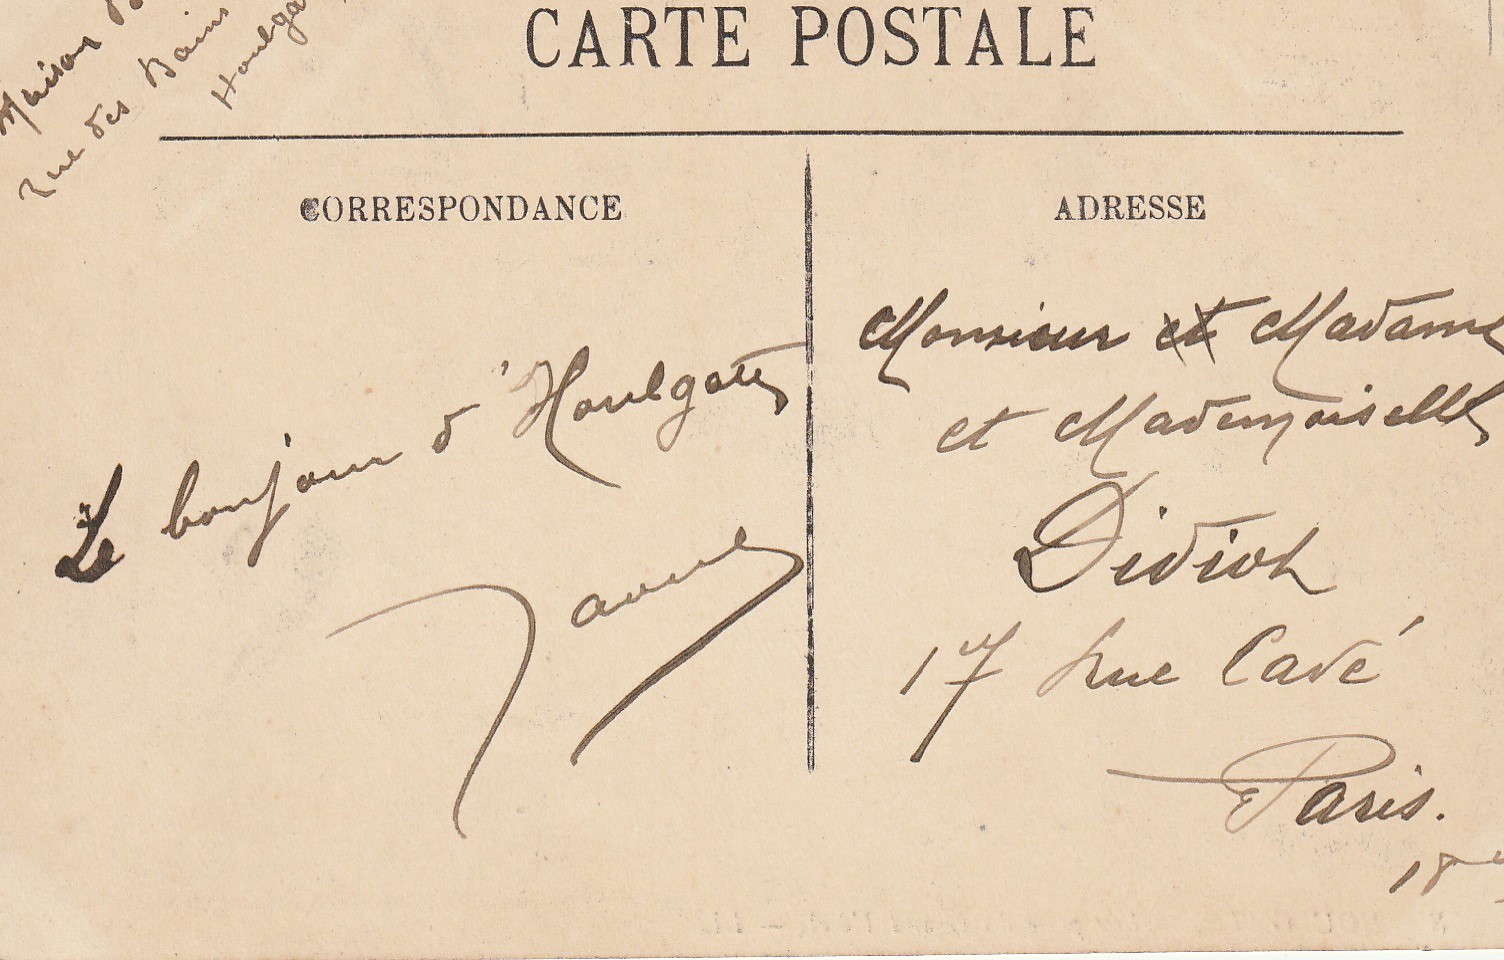 Maison
rue des Bains
Houlga
CARTE POSTALE
CORRESPONDANCE
Le bonjour d'Houlgate
ADRESSE
Monsieur et Madame
et Mademoiselle
Didiot
17 Rue Cavé
Paris.
18